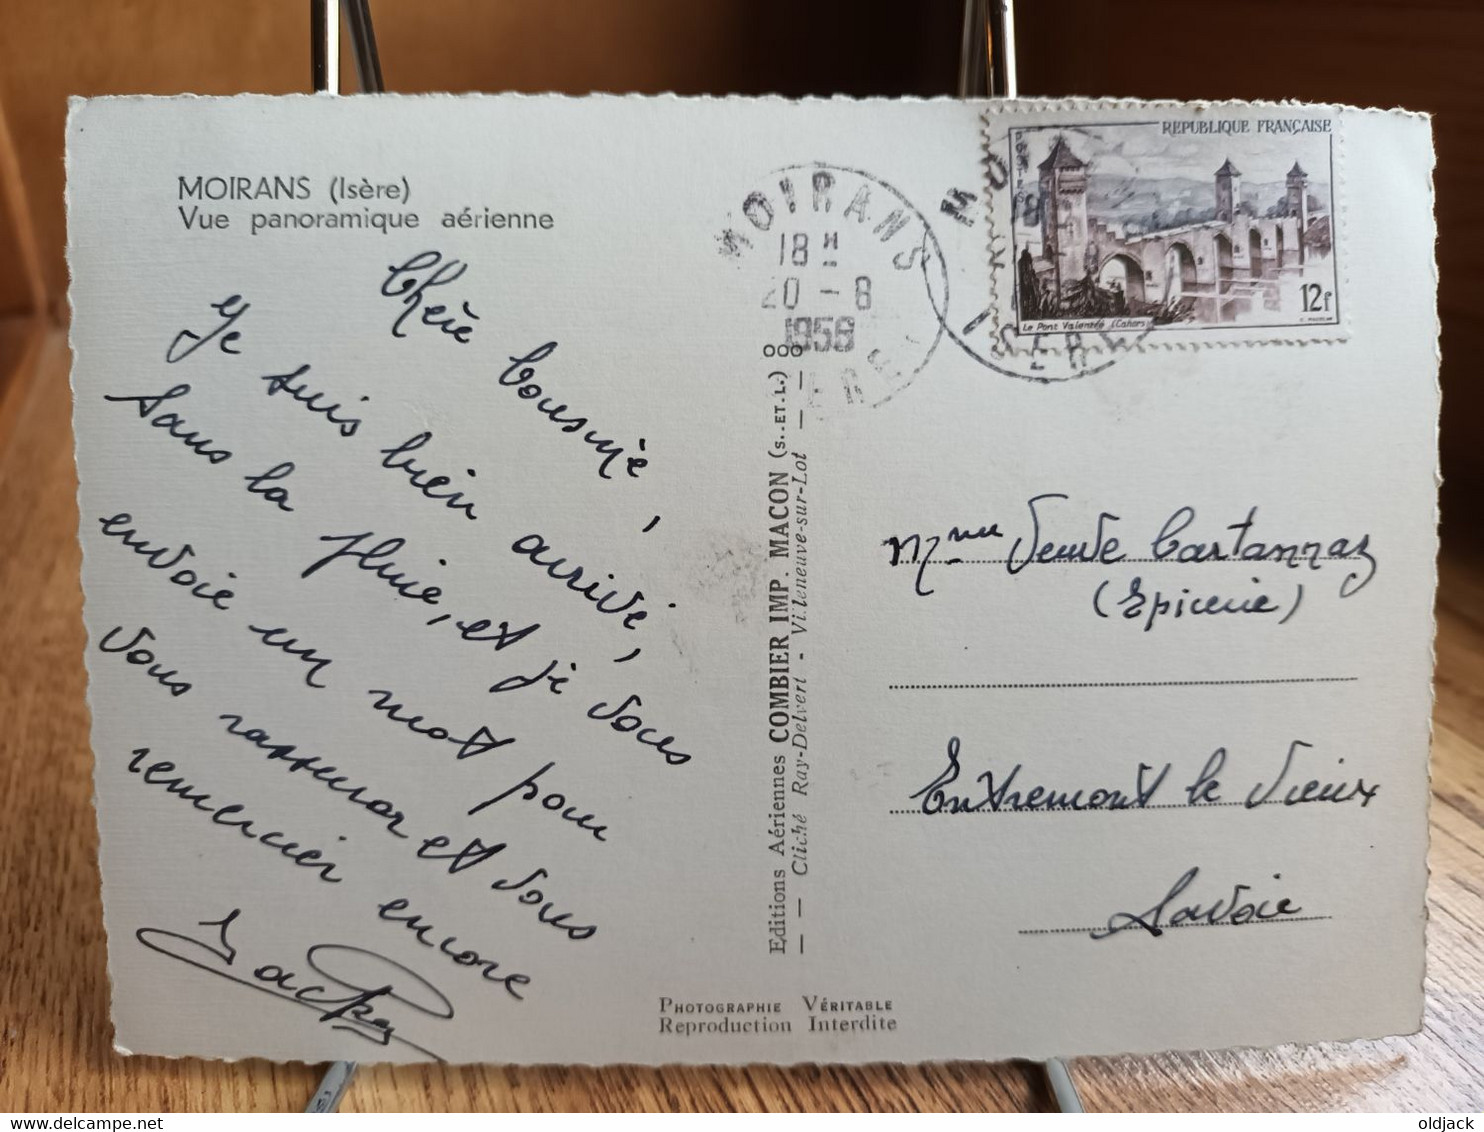 MOIRANS (Isère)
Vue panoramique aérienne
Chère Cousine,
Je suis bien arrivé,
sans la pluie, et je vous
envoie un mot pour
vous rassurer et vous
remercier encore
MOIRANS
18 H
20 - 8
1958
ISERE
MOIRANS
18
ISERE
REPUBLIQUE FRANÇAISE
POSTES
Le Pont Valentré (Cahors)
12f
Editions Aériennes COMBIER IMP. MACON (S.-ET-L.)
— Cliché Ray-Delvert - Villeneuve-sur-Lot —
Mme Veuve Cartannaz
(Epicerie)
Entremont le Vieux
Savoie
PHOTOGRAPHIE VÉRITABLE
Reproduction Interdite
oldjack